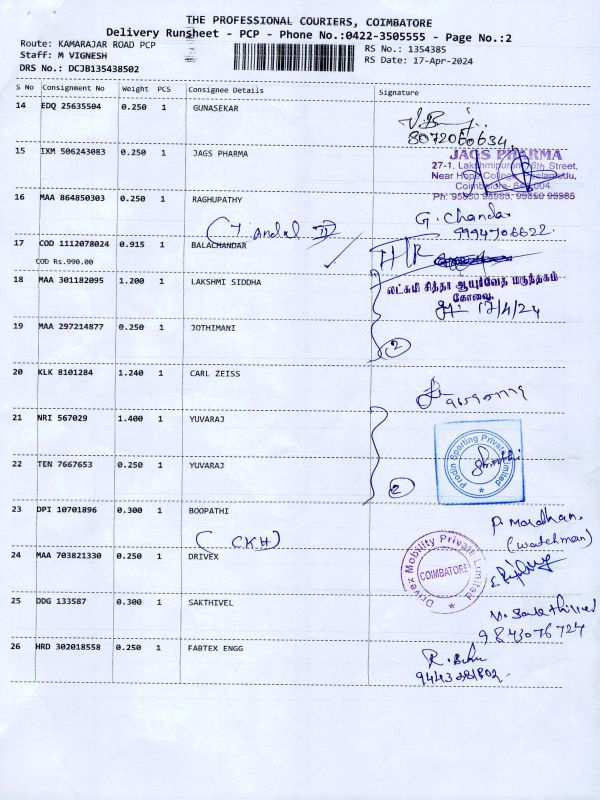 THE PROFESSIONAL COURIERS, COIMBATORE
Delivery Runsheet - PCP - Phone No.:0422-3505555 - Page No.:2
Route: KAMARAJAR ROAD PCP
RS No.: 1354385
Staff: M VIGNESH
RS Date: 17-Apr-2024
DRS No.: DCJB135438502
S No Consignment No Weight PCS Consignee Details Signature
14 EDQ 25635504 0.250 1 GUNASEKAR
8072060634
15 IXM 506243083 0.250 1 JAGS PHARMA
JAGS PHARMA
27-1, Lakshmipuram, 6th Street,
Near Hope College, Peelamedu,
Coimbatore- 641 004.
16 MAA 864850303 0.250 1 RAGHUPATHY
G. Chandar
9994706622.
17 COD 1112078024 0.915 1 BALACHANDAR
COD Rs.990.00
18 MAA 301182095 1.200 1 LAKSHMI SIDDHA
லட்சுமி சித்தா ஆயுர்வேத மருந்தகம்
கோவை.
17/4/24
19 MAA 297214877 0.250 1 JOTHIMANI
2
20 KLK 8101284 1.240 1 CARL ZEISS
21 NRI 567029 1.400 1 YUVARAJ
Prodin Sporting Private Limited
22 TEN 7667653 0.250 1 YUVARAJ
2
23 DPI 10701896 0.300 1 BOOPATHI
(CKH)
P. Maradhan.
(watchman)
24 MAA 703821330 0.250 1 DRIVEX
Drivex Mobility Private Limited
COIMBATORE
25 DDG 133587 0.300 1 SAKTHIVEL
M. Sakthivel
9843076727
26 HRD 302018558 0.250 1 FABTEX ENGG
R. Babu
9443281802